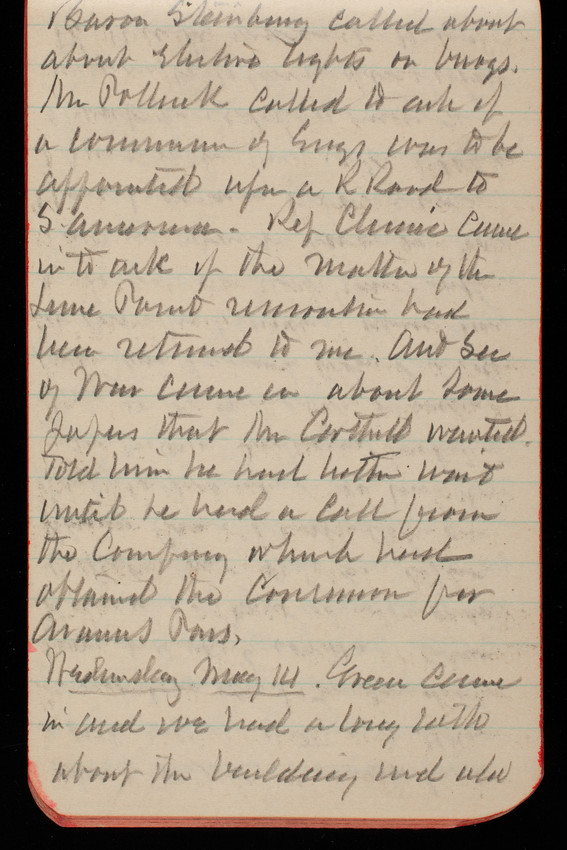 Baron Sternburg called about
about Electric lights on buoys.
Mr Pollock called to ask if
a commission of Engrs was to be
appointed upon a R Road to
S America. Rep Clunie came
in to ask if the matter of the
Lime Point reservation had
been returned to me. And Sec
of War came in about some
papers that Mr Corthell wanted.
Told him he had better wait
until he had a call from
the Company which had
obtained the Concession for
Aransas Pass.
Wednesday May 14. Green came
in and we had a long talk
about the building and also